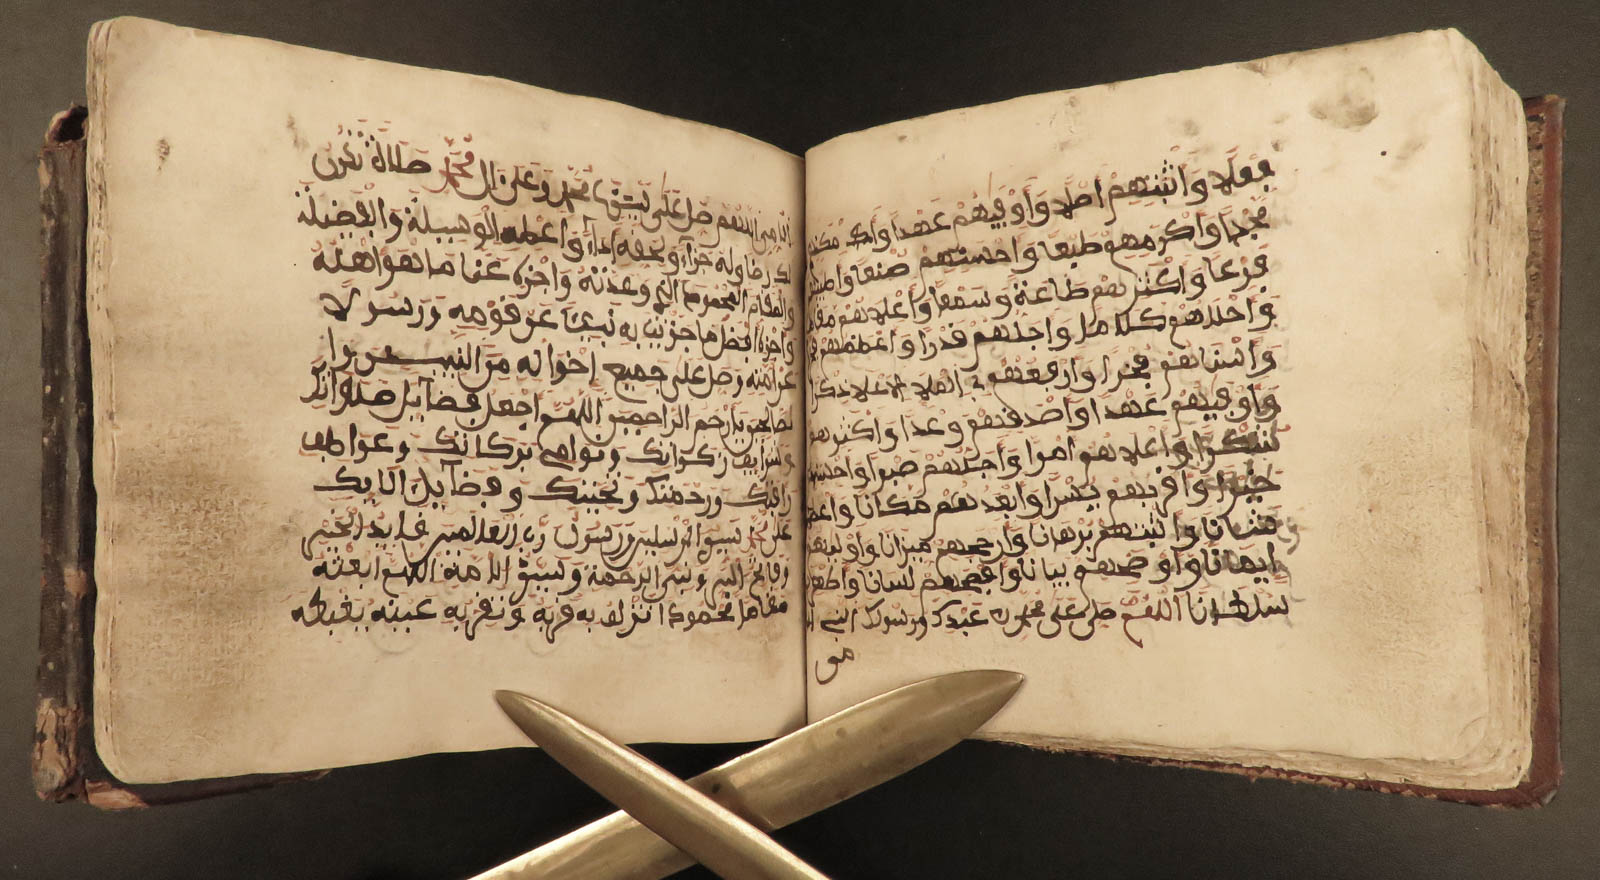 فعلا واثبتهم اصلا واوفيهم عهدا وامكنهم
مجدا واكرمهم طبعا واحسنهم صنعا واطيبهم
فرعا واكثرهم طاعة وسمعا واعلاهم مقاما
واحلاهم كلاما واجلهم قدرا واعظمهم
واسناهم فخرا وارفعهم في الملا الاعلا ذكرا
واوفيهم عهدا واصدقهم وعدا واكثرهم
شكرا واعلاهم امرا واجملهم صبرا واحسنهم
خيرا واقربهم يسرا وابعدهم مكانا واعظمهم
شانا واثبتهم برهانا وارجحهم ميزانا واولهم
ايمانا واوضحهم بيانا وافصحهم لسانا واظهرهم
سلطانا اللهم صل على محمد عبدك ورسولك النبي ا
مي
اللهم صل على سيدنا محمد وعلى ال محمد صلاة تكون
لك رضا وله جزاء ولحقه اداء واعطه الوسيلة والفضيلة
والمقام المحمود الذي وعدته واجزه عنا ما هو اهله
واجزه افضل ما جزيت به نبيئا عن قومه ورسولا
عن امته وصل على جميع اخوانه من النبيين وا
لصالحين يا ارحم الراحمين اللهم اجعل فضايل صلواتك
وشرايف زكواتك ونوامي بركاتك وعواطف
رافتك ورحمتك وتحيتك وفضايل الايك
على محمد سيد المرسلين ورسول رب العالمين قايد الخير
وفاتح البر ونبي الرحمة وسيد الامة اللهم ابعثه
مقاما محمودا تزلف به قربه وتقر به عينه يغبطه